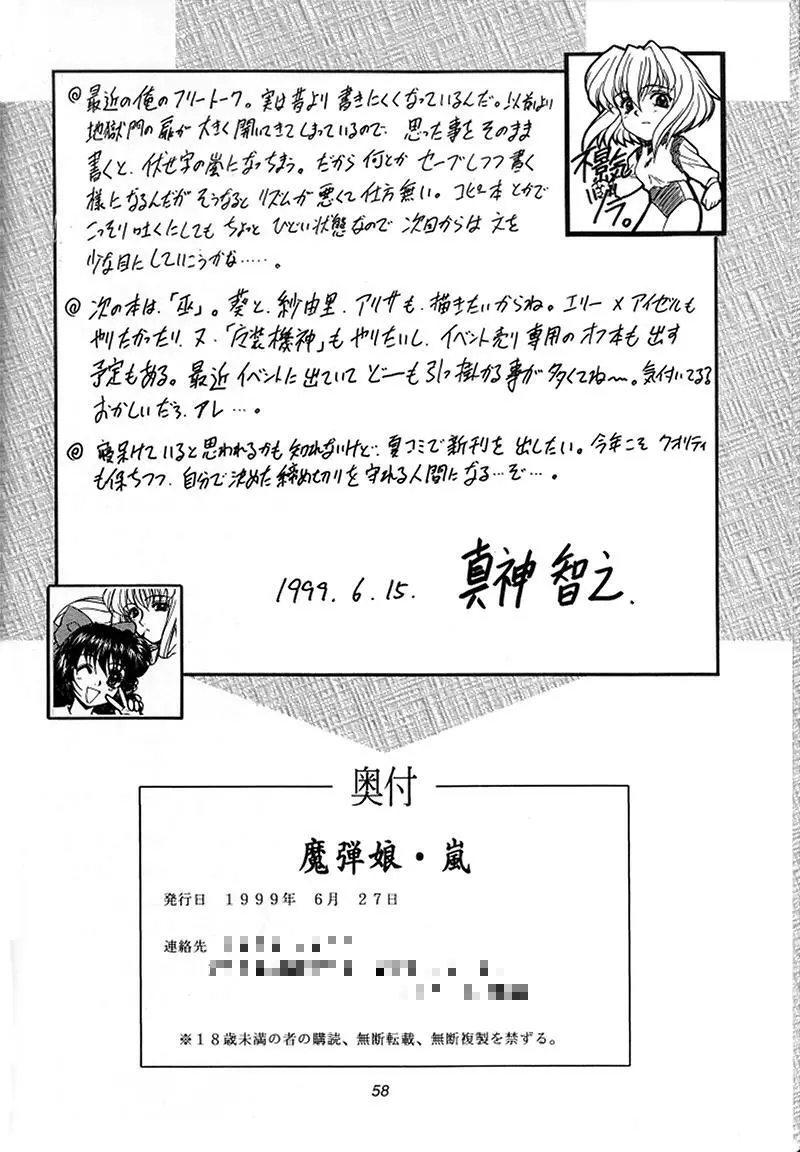 @ 最近の俺のフリートーク。実は昔より書きにくくなっているんだ。以前より
地獄門の扉が大きく開いてきてしまっているので、思った事をそのまま
書くと、伏せ字の嵐になっちまう。だから何とかセーブしつつ書く
様になるんだがそうなるとリズムが悪くて仕方無い。コピー本とかで
こっそり吐くにしてもちょっとひどい状態なので次回からは文を
少な目にしていこうかな……。
@ 次の本は、「巫」。葵と、紗由里、アリサも、描きたいからね。エリー×アイゼルも
やりたかったり、又、「装機神」もやりたいし、イベント売り専用のオフ本も出す
予定もある。最近イベントに出ていてどーも引っ掛かる事が多くてね〜。気付いてる
おかしいだろ、アレ…。
@ 寝呆けていると思われるかも知れないけど、夏コミで新刊を出したい。今年こそクオリティ
も保ちつつ、自分で決めた締め切りを守れる人間になる…ぞ…。
1999.6.15. 真神智之.
奥付
魔弾娘・嵐
発行日 1999年 6月 27日
連絡先
※18歳未満の者の購読、無断転載、無断複製を禁ずる。
58